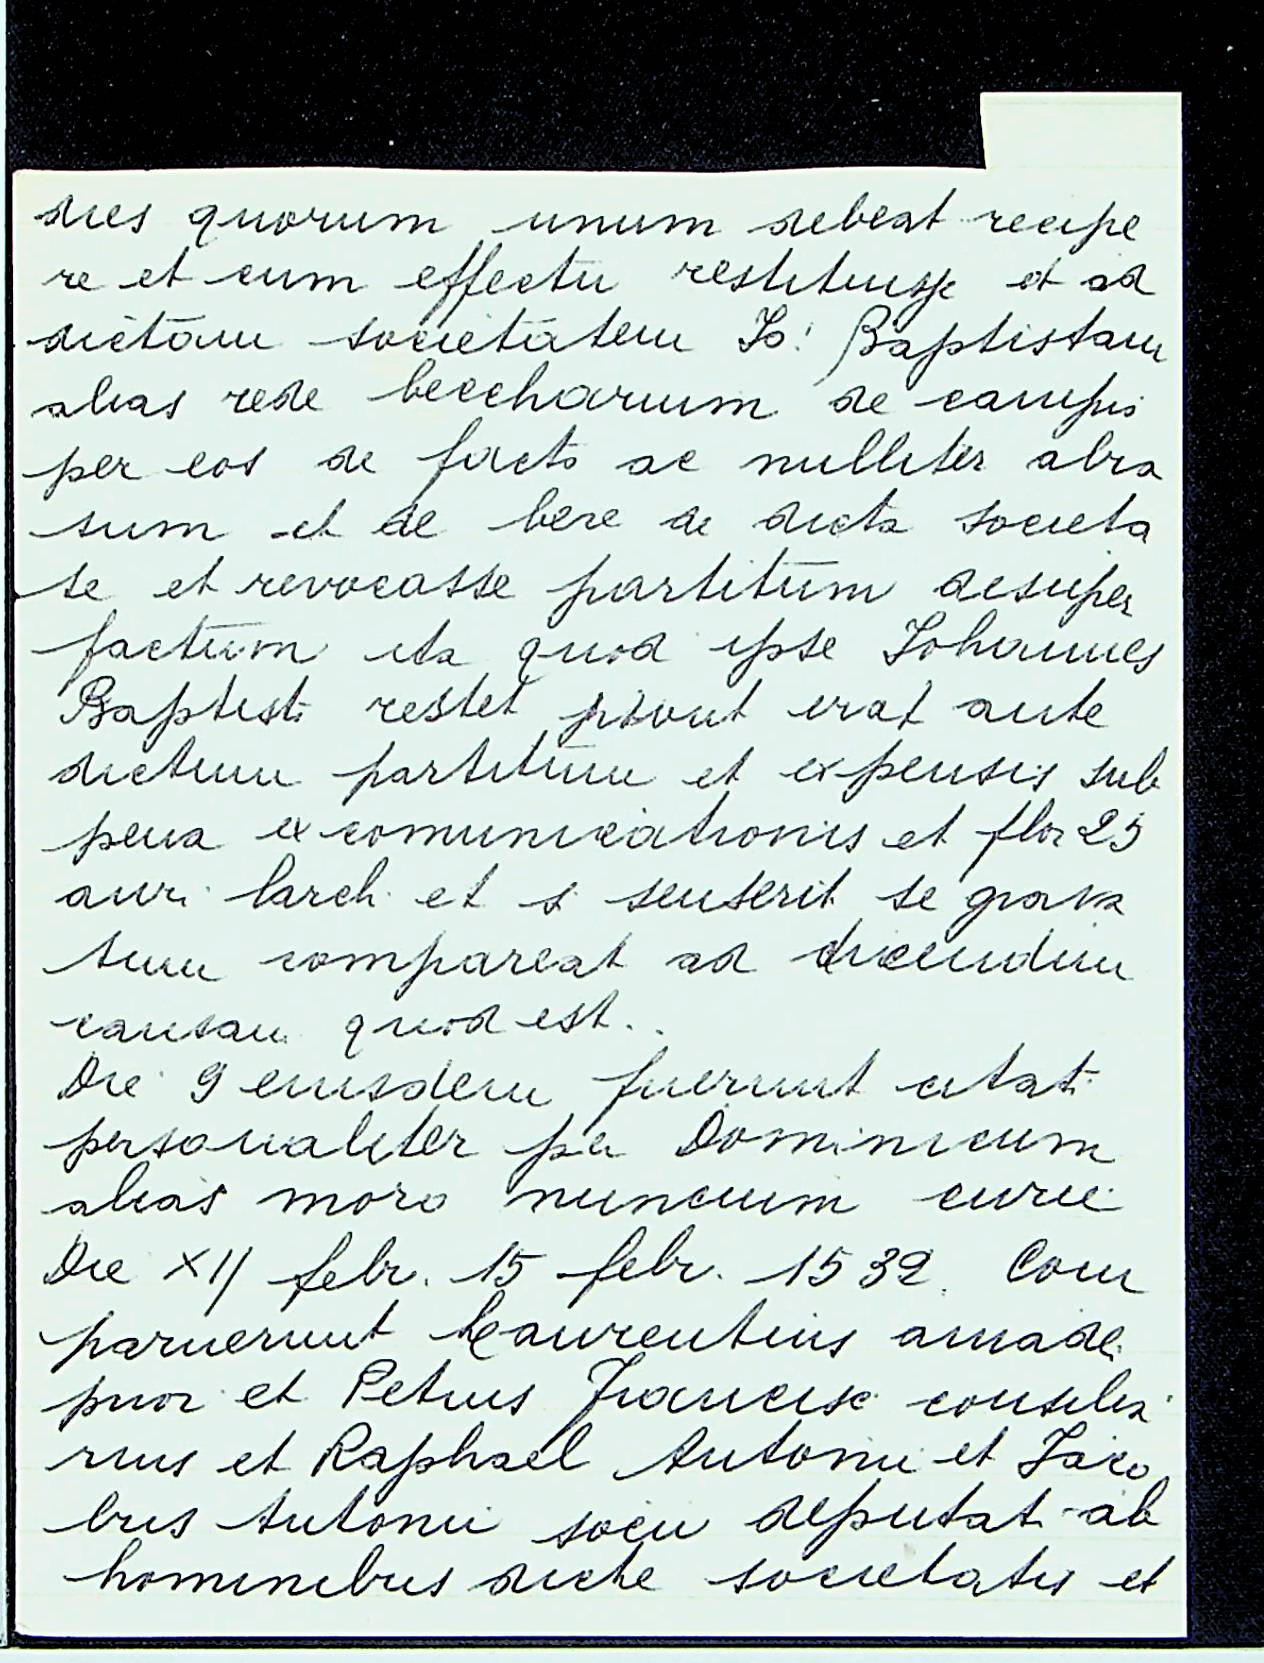 dies quorum unum debeat recipe
re et cum effectu restituisse et ad
dictam societatem Io: Baptistam
alias rede beccharium de campis
per eos de facto ac nulliter abra
sum et de bere de dicta societa
te et revocasse partitum desuper
factum ita quod ipse Iohannes
Baptist. restet prout erat ante
dictum partitum et expensis sub
pena excomunicationis et flor 25
auri larch. et si senserit se grava
tum compareat ad dicendum
causam quod est..
Die 9 eiusdem fuerunt citati
personaliter per Dominicum
alias moro nuncium curie
Die XII febr. 15 febr. 1532. Com
paruerunt Laurentius amadei
prior et Petrus Francisci consilia
rius et Raphael Antonii et Iaco
bus Antonii socii deputati ab
hominibus dicte societatis et